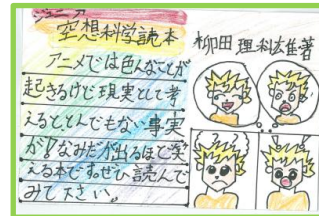 ジュニア
空想科学読本
柳田理科雄著
アニメでは色んなことが
起きるけど現実として考
えると、とんでもない事実
が!なみだが出るほど笑
える本です。ぜひ読んで
みて下さい。